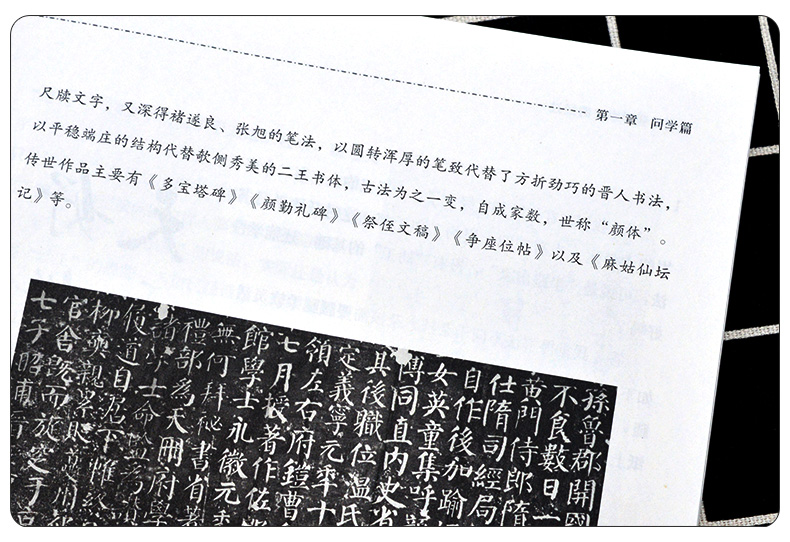 第一章 问学篇
尺牍文字，又深得褚遂良、张旭的笔法，以圆转浑厚的笔致代替了方折劲巧的晋人书法，
以平稳端庄的结构代替欹侧秀美的二王书体，古法为之一变，自成家数，世称“颜体”。
传世作品主要有《多宝塔碑》《颜勤礼碑》《祭侄文稿》《争座位帖》以及《麻姑仙坛
记》等。
孫晉郡開國
不食數日一
黄門侍郎隋
仕隋司經局
自作後加踰
女英童集呼
傅同直内史省
其後職位温氏
定義寧元年十
領左右府鎧曹
七月授著作佐
館學士永徽元年
無何拜秘書省著
禮部為天冊府學
道自
官舍既而旋窆于京
七子昭甫